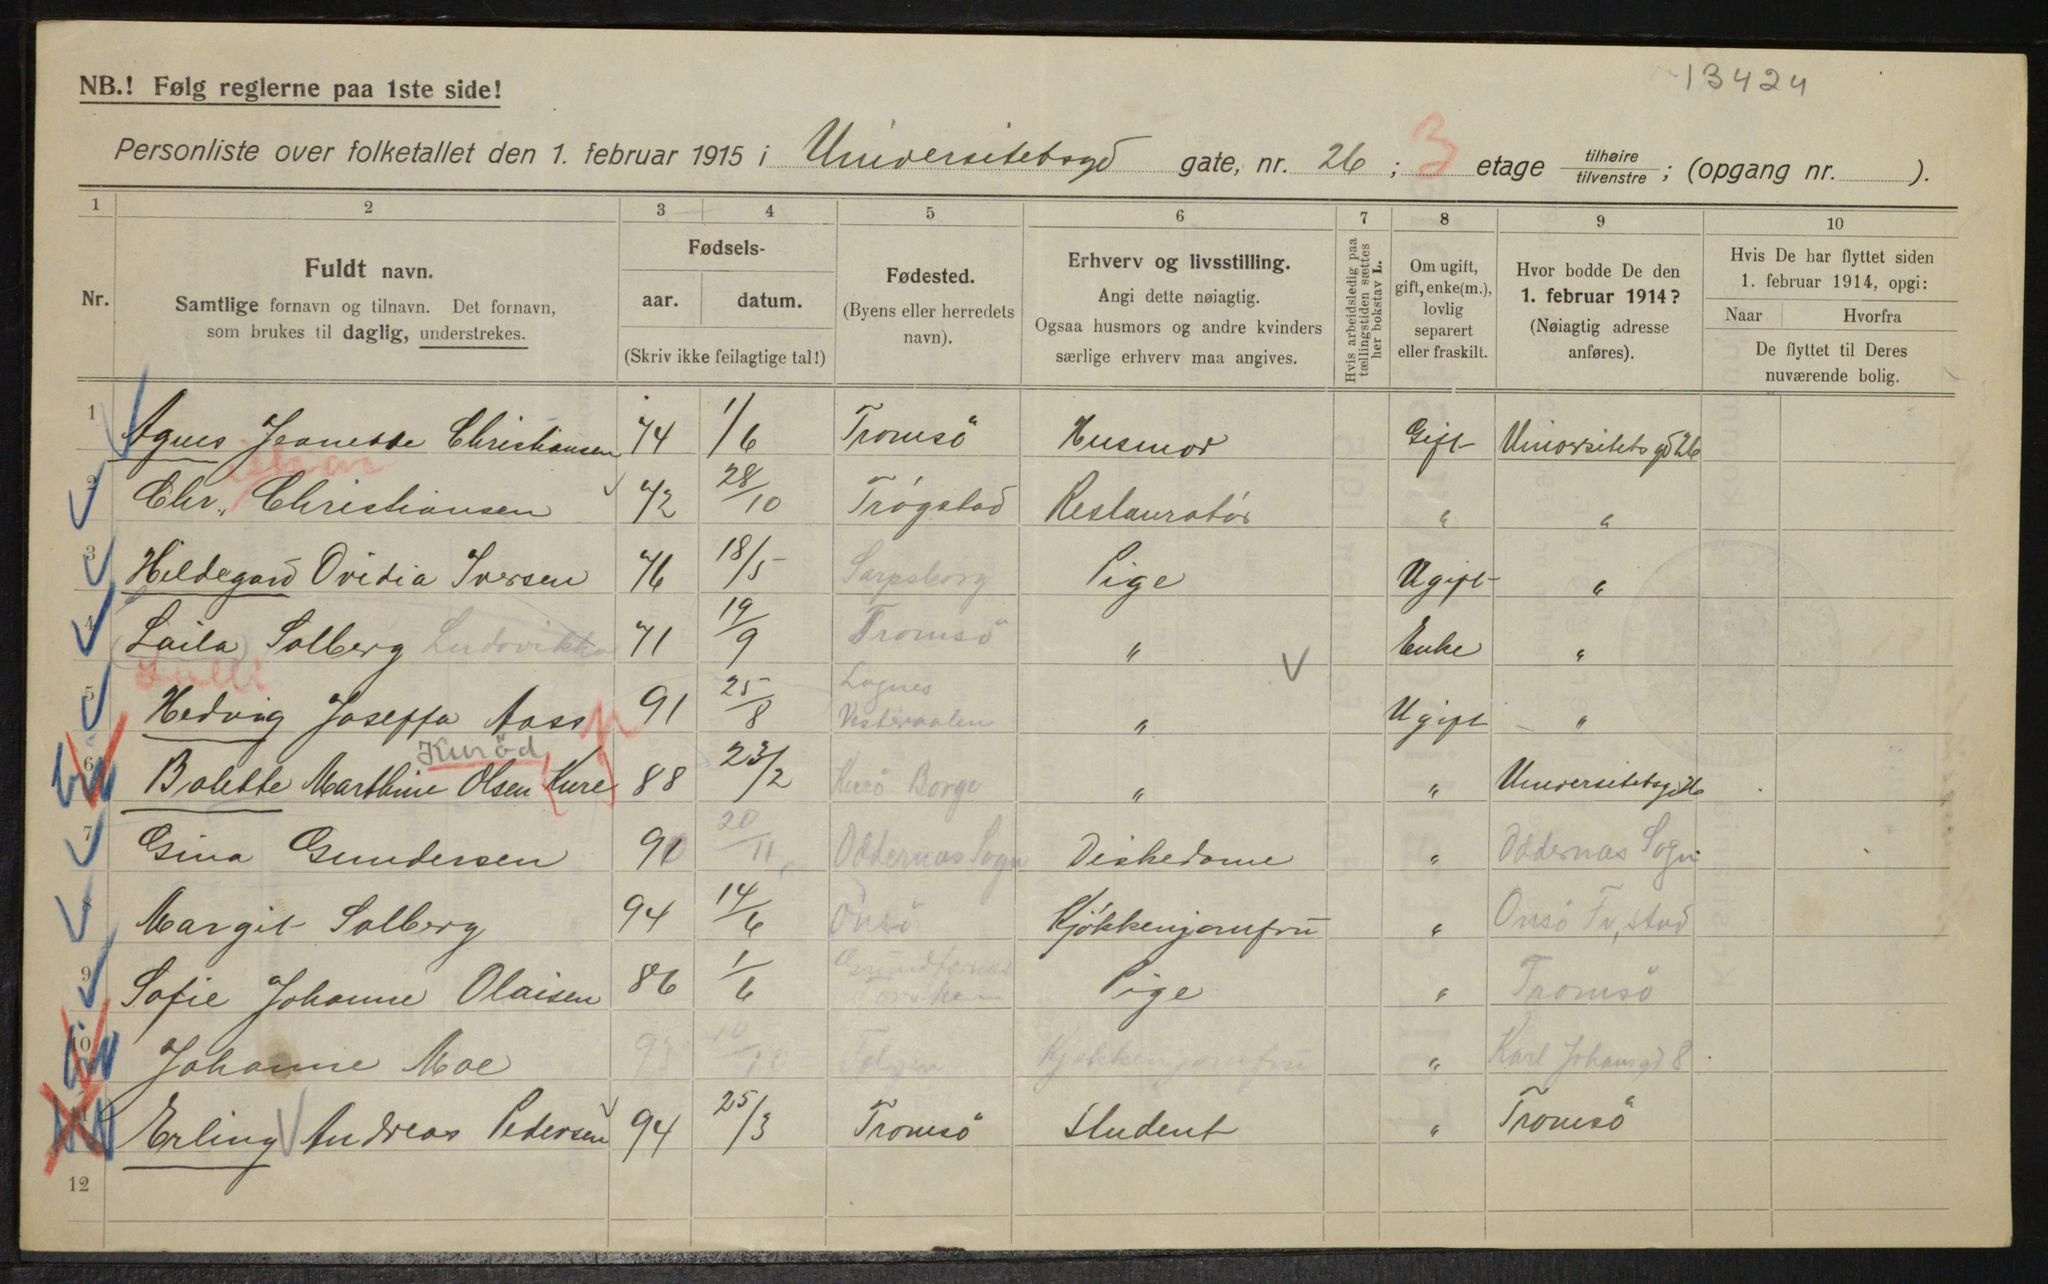 13424
NB.! Følg reglerne paa 1ste side!
Personliste over folketallet den 1. februar 1915 i Universitetsgd gate, nr. 26 ; 3 etage tilhøire / tilvenstre ; (opgang nr. ).
1 2 3 4 5 6 7 8 9 10
Nr.
Fuldt navn.
Samtlige fornavn og tilnavn. Det fornavn,
som brukes til daglig, understrekes.
Fødsels-
aar. datum.
(Skriv ikke feilagtige tal!)
Fødested.
(Byens eller herredets
navn).
Erhverv og livsstilling.
Angi dette nøiagtig.
Ogsaa husmors og andre kvinders
særlige erhverv maa angives.
Hvis arbeidsledig paa
tællingstiden sættes
her bokstav L.
Om ugift,
gift, enke(m.),
lovlig
separert
eller fraskilt.
Hvor bodde De den
1. februar 1914?
(Nøiagtig adresse
anføres).
Hvis De har flyttet siden
1. februar 1914, opgi:
Naar Hvorfra
De flyttet til Deres
nuværende bolig.
1 Agnes Jeanette Christiansen 74 1/6 Tromsö Husmor Gift Universitetsgd 26
2 Chr. Christiansen 72 28/10 Trögstad Restauratör " "
3 Hildegard Ovidia Iversen 76 18/5 Sarpsborg Pige Ugift "
4 (Laila) Solberg Ludovikka 71 19/9 Tromsö " Enke "
Lulli
5 Hedvig Joseffa Aass 91 25/8 Lognes Vesteraalen " Ugift "
Kuröd
6 Bolette Marthine Olsen (Kure) 88 23/2 Kurö Borge " " Universitetsgd 26
7 Gina Gundersen 91 20/11 Oddernæs Sogn Diskedame " Oddernæs Sogn
8 Margit Solberg 94 14/6 Onsö Kjökkenjomfru " Onsö Fr, stad
9 Sofie Johanne Olaisen 86 1/6 Torsken Pige " Tromsö
10 Johanne Moe 93 Kjökkenjomfru " Karl Johansgd 8
11 Erling Andreas Pedersen 94 25/3 Tromsö Student " Tromsö
12